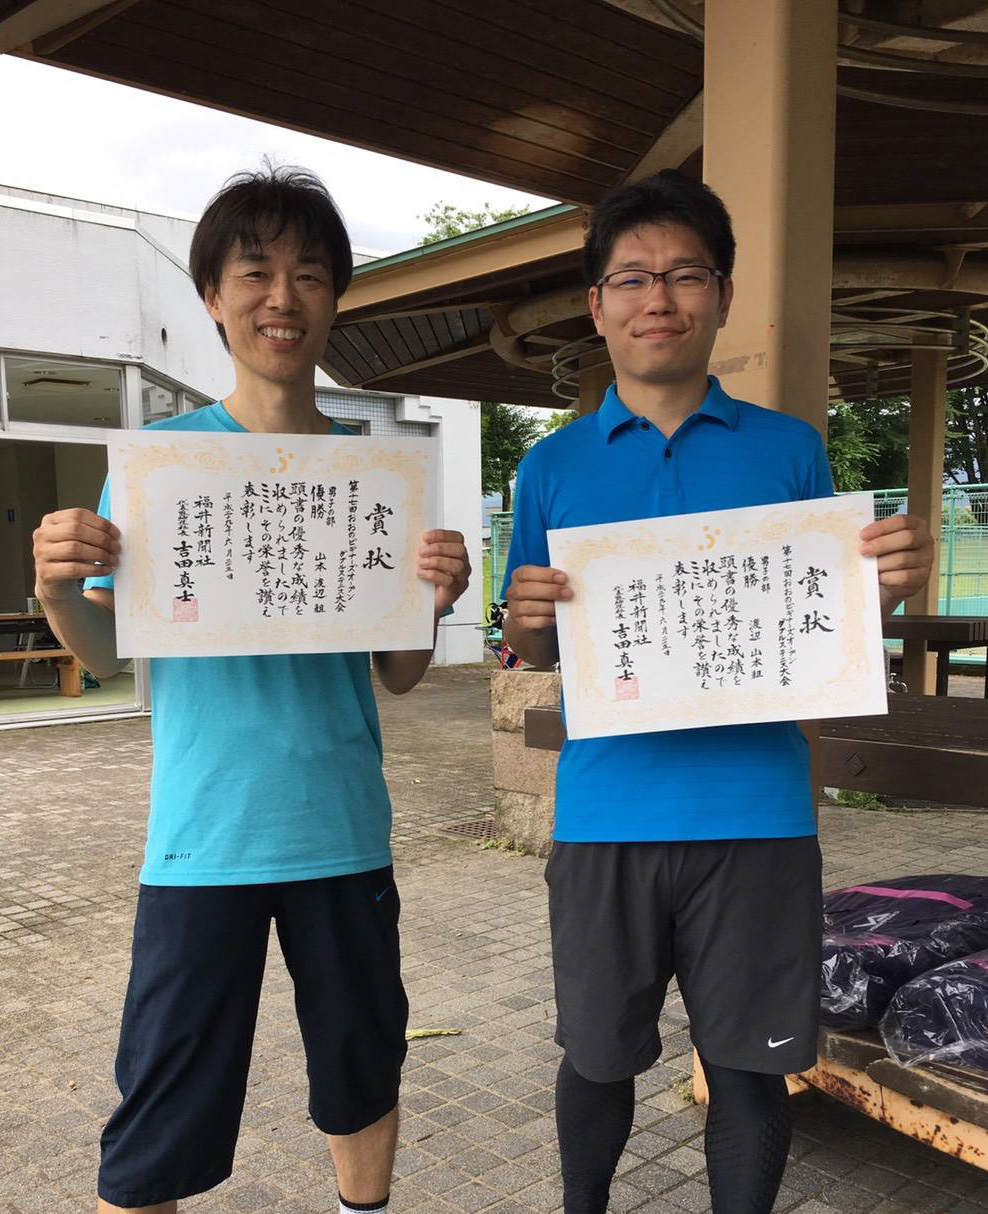 賞状
第十七回おおのビギナーズオープン
ダブルステニス大会
男子の部
優勝 山本 渡辺 組
頭書の優秀な成績を
収められましたので
ここにその栄誉を讃え
表彰します
平成二十九年六月二五日
福井新聞社
吉田真士
DRI-FIT
賞状
第十七回おおのビギナーズオープン
ダブルステニス大会
男子の部
優勝 渡辺 山本 組
頭書の優秀な成績を
収められましたので
ここにその栄誉を讃え
表彰します
平成二十九年六月二五日
福井新聞社
吉田真士